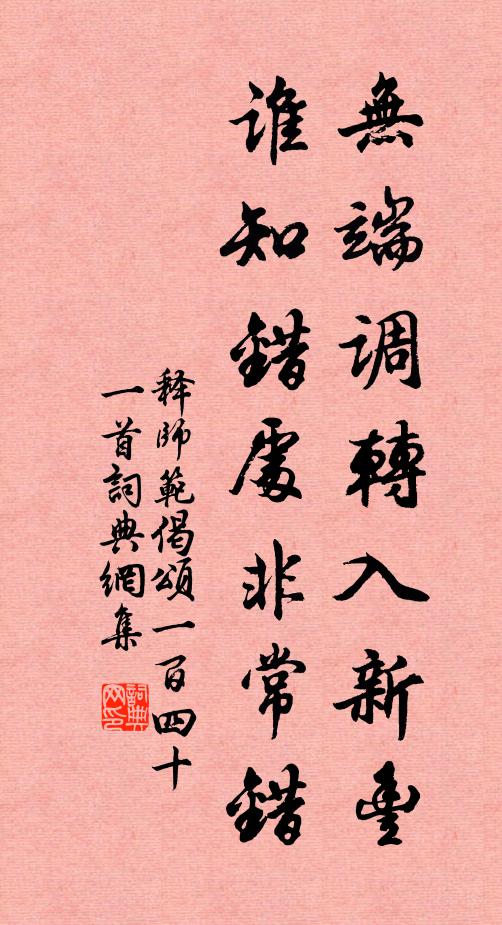 無端調轉入新豐
誰知錯處非常錯
释師範偈頌一百四十
一首詞典網集
詞典网印